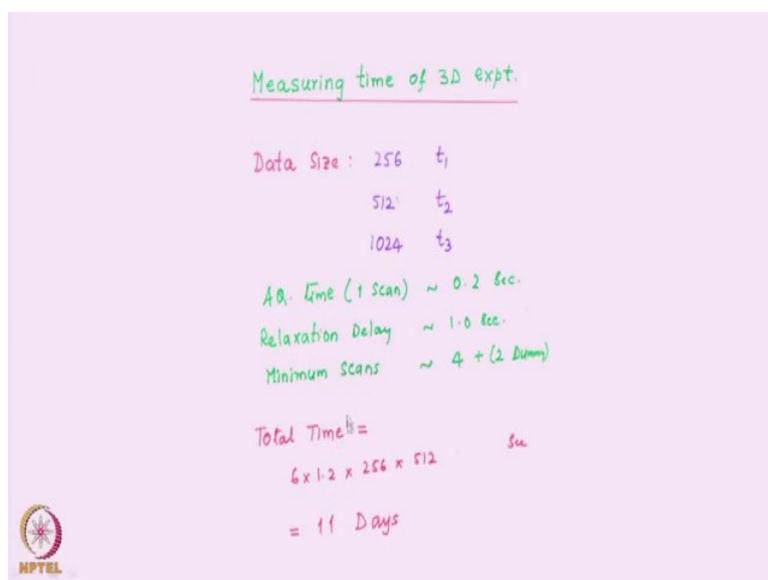 Measuring time of 3D expt.
Data Size : 256 t₁
512 t₂
1024 t₃
AQ. time (1 Scan) ~ 0.2 Sec.
Relaxation Delay ~ 1.0 Sec.
Minimum Scans ~ 4 + (2 Dummy)
Total Time =
6 x 1.2 x 256 x 512 Sec
= 11 Days
NPTEL